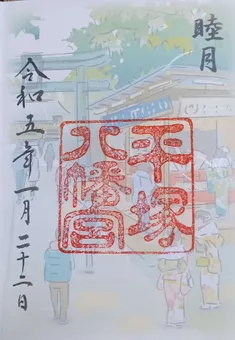 睦月
平塚
八幡宮
令和五年一月二十二日